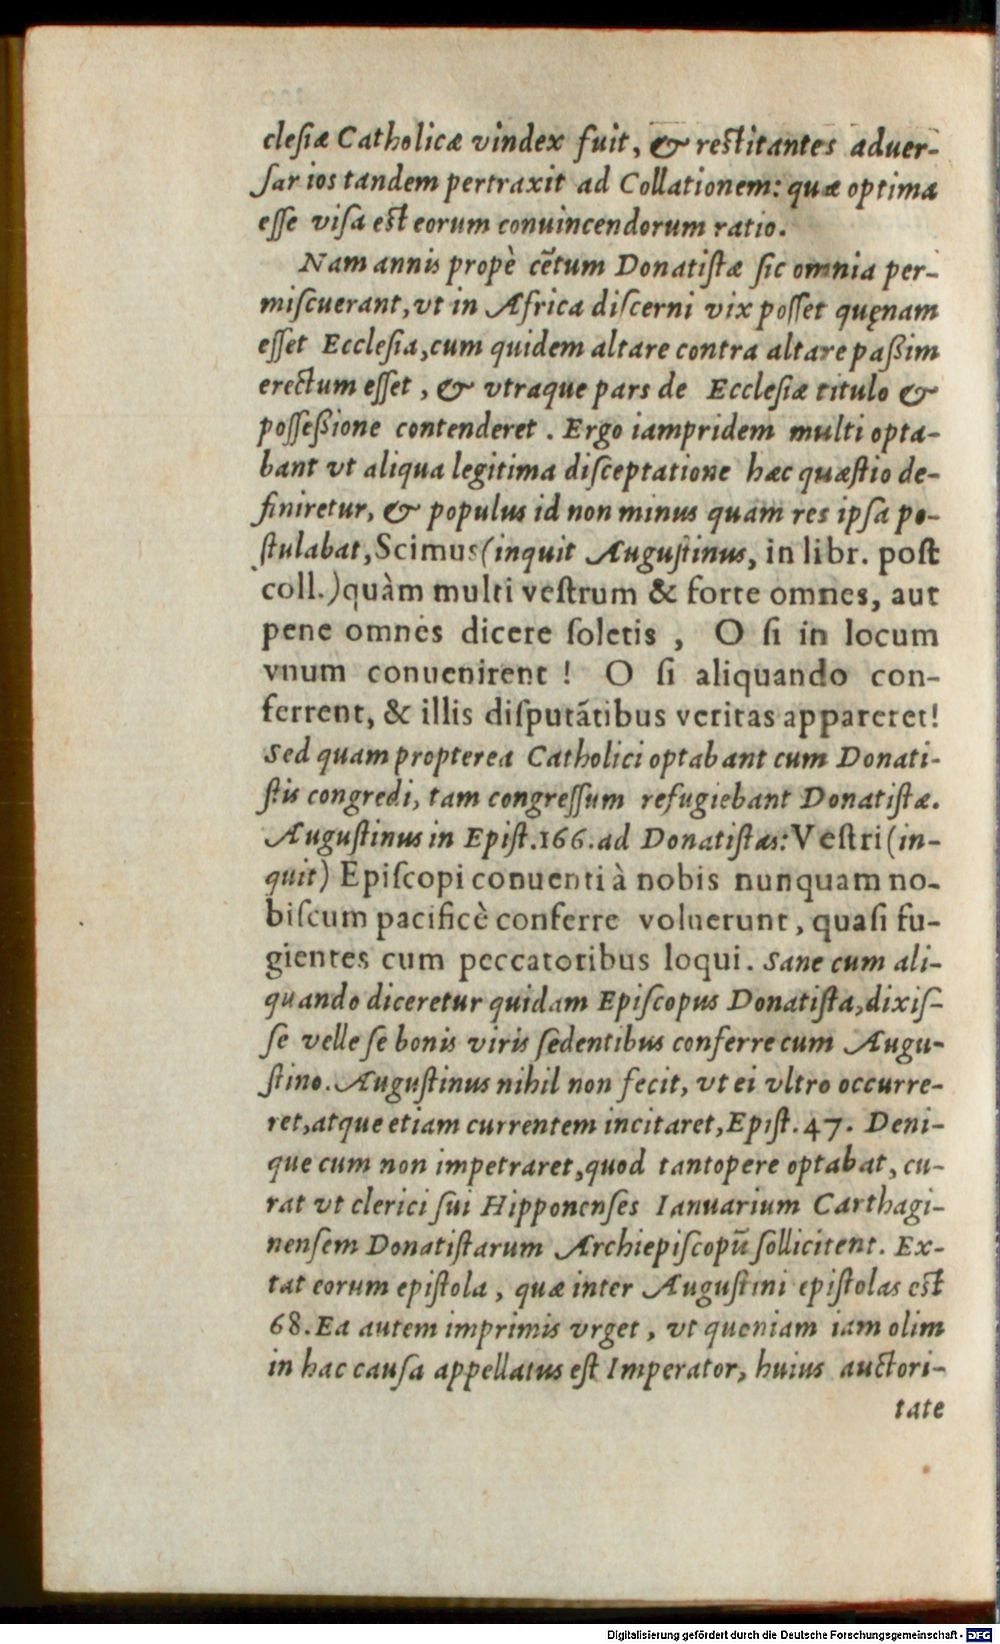 clesiæ Catholicæ vindex fuit, & restitantes aduer-
sarios tandem pertraxit ad Collationem: quæ optima
esse visa est eorum conuincendorum ratio.
Nam annis propè cẽtum Donatistæ sic omnia per-
miscuerant, vt in Africa discerni vix posset quęnam
esset Ecclesia, cum quidem altare contra altare paßim
erectum esset, & vtraque pars de Ecclesiæ titulo &
posseßione contenderet. Ergo iampridem multi opta-
bant vt aliqua legitima disceptatione hæc quæstio de-
finiretur, & populus id non minus quam res ipsa po-
stulabat, Scimus (inquit Augustinus, in libr. post
coll.) quàm multi vestrum & forte omnes, aut
pene omnes dicere soletis, O si in locum
vnum conuenirent! O si aliquando con-
ferrent, & illis disputãtibus veritas appareret!
Sed quam propterea Catholici optabant cum Donati-
stis congredi, tam congressum refugiebant Donatistæ.
Augustinus in Epist. 166. ad Donatistas: Vestri (in-
quit) Episcopi conuenti à nobis nunquam no-
biscum pacificè conferre voluerunt, quasi fu-
gientes cum peccatoribus loqui. Sane cum ali-
quando diceretur quidam Episcopus Donatista, dixis-
se velle se bonis viris sedentibus conferre cum Augu-
stino. Augustinus nihil non fecit, vt ei vltro occurre-
ret, atque etiam currentem incitaret, Epist. 47. Deni-
que cum non impetraret, quod tantopere optabat, cu-
rat vt clerici sui Hipponenses Ianuarium Carthagi-
nensem Donatistarum Archiepiscopũ sollicitent. Ex-
tat eorum epistola, quæ inter Augustini epistolas est
68. Ea autem imprimis vrget, vt quoniam iam olim
in hac causa appellatus est Imperator, huius auctori-
tate
Digitalisierung gefördert durch die Deutsche Forschungsgemeinschaft - DFG